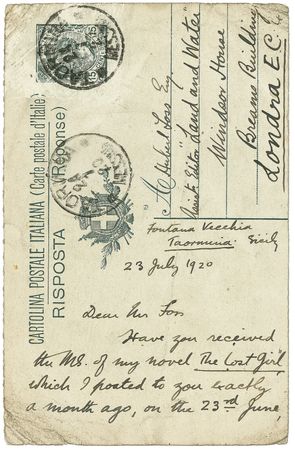 CARTOLINA POSTALE ITALIANA (Carte postale d'Italie)
RISPOSTA (Réponse)
15
15
TAORMINA
MESSINA
A Hubert Foss Esq
Assist. Editor "Land and Water"
Windsor House
Breams Building
Londra E.C.
Fontana Vecchia
Taormina Sicily
23 July 1920
Dear Mr Foss
Have you received
the MS. of my novel The Lost Girl
which I posted to you exactly
a month ago, on the 23rd June,